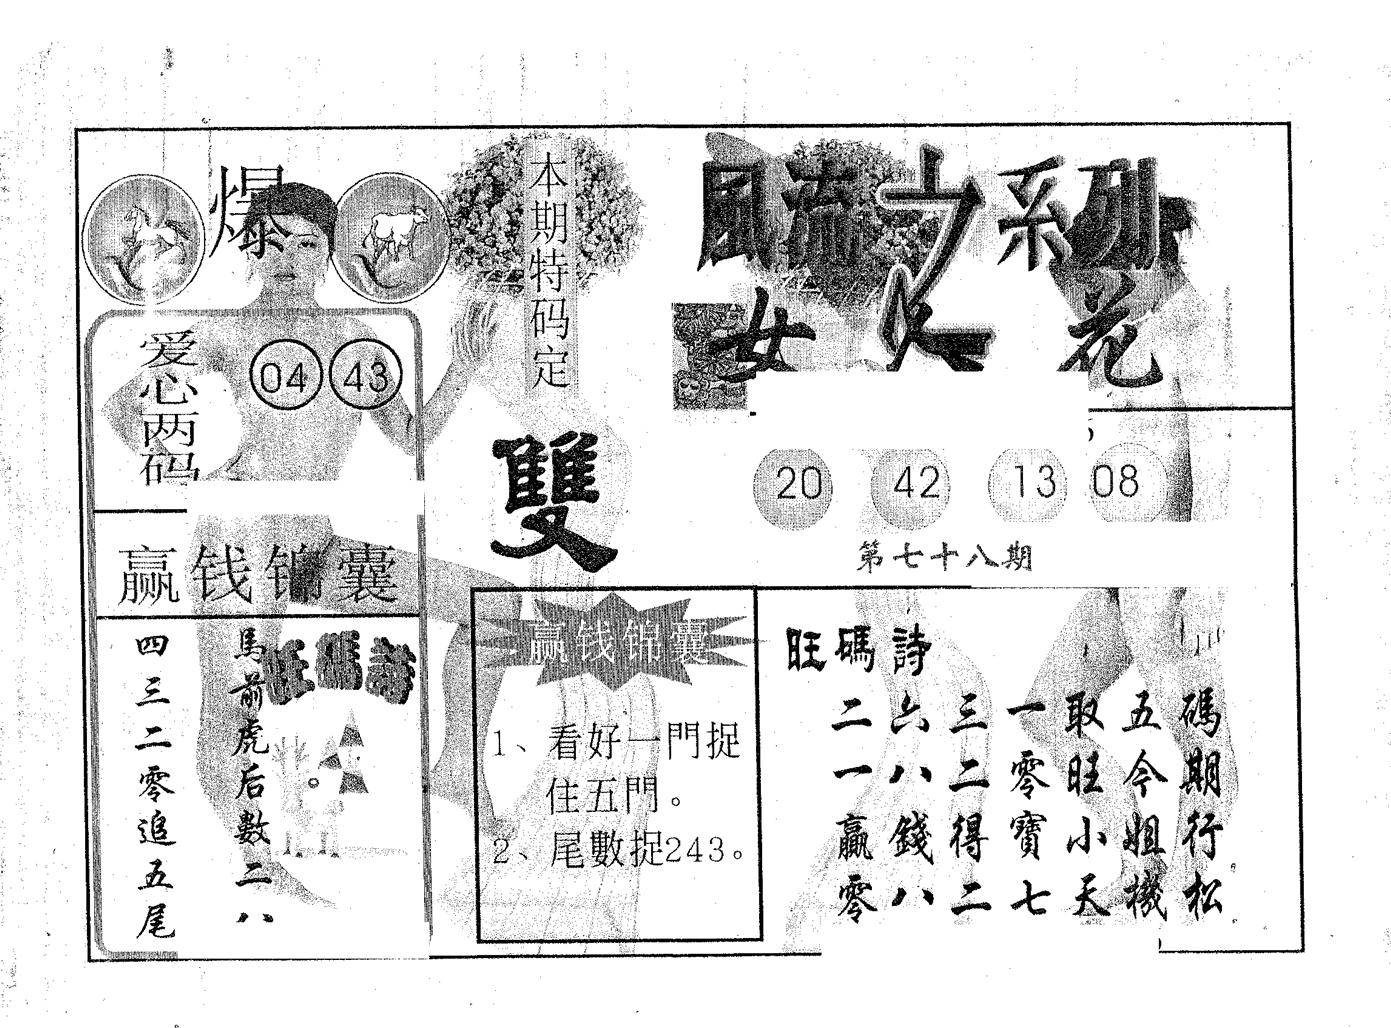 爆
本期特码定
雙
爱心两码
04 43
赢钱锦囊
旺碼詩
馬前虎后數二八
四三二零追五尾
風流之系列
女人花
20 42 13 08
第七十八期
赢钱锦囊
1、看好一門捉
住五門。
2、尾數捉243。
旺碼詩
二六三一取五碼
一八二零旺今期
贏錢得寶小姐行
零八二七天機松